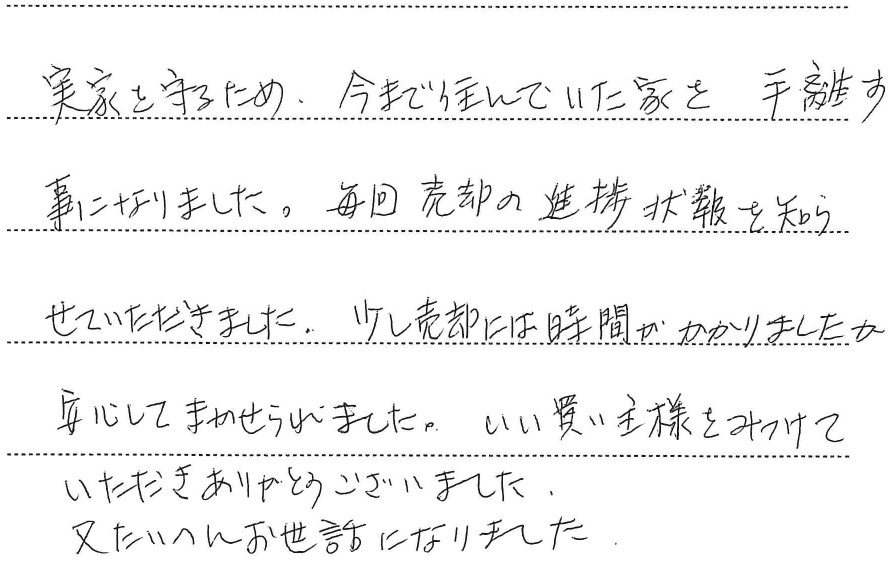 実家を守るため、今まで住んでいた家を 手離す
事になりました。毎回売却の進捗状報を知ら
せていただきました。少し売却には時間がかかりましたが
安心してまかせられました。いい買い主様をみつけて
いただきありがとうございました。
又たいへんお世話になりました。